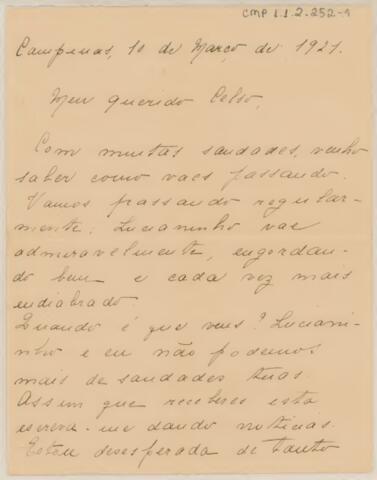 CMP 1.1.2.252-1
Campinas, 10 de Março de 1921.
Meu querido Celso,
Com muitas saudades, venho
saber como vaes passando.
Vamos passando regular-
mente; Lucianinho vae
admiravelmente, engordan-
do bem e cada vez mais
endiabrado.
Quando é que vens? Luciani-
nho e eu não podemos
mais de saudades tuas.
Assim que receberes esta
escreva-me dando noticias.
Estou desesperada de tanto